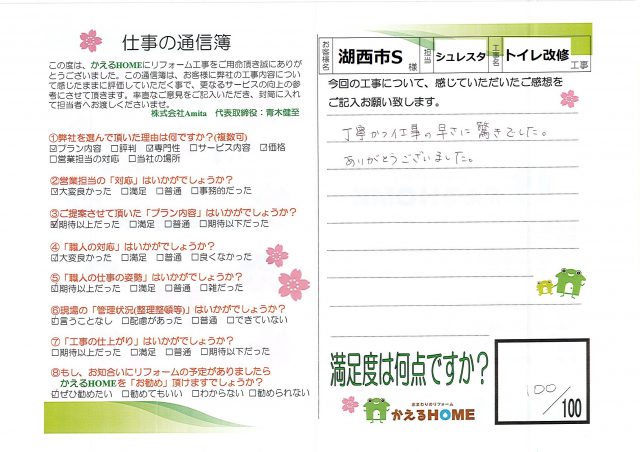 仕事の通信簿
この度は、かえるHOMEにリフォーム工事をご用命頂き誠にありが
とうございました。この通信簿は、お客様に弊社の工事内容につい
て感じたままに評価していただく事で、更なるサービスの向上の参
考にさせて頂きます。率直なご意見をご記入いただき、封筒に入れ
て担当者へお渡しくださいませ。
株式会社Amita 代表取締役：青木健至
①弊社を選んで頂いた理由は何ですか?(複数可)
☑プラン内容 □評判 ☑専門性 □サービス内容 ☑価格
□営業担当の対応 □当社の場所
②営業担当の「対応」はいかがでしょうか?
☑大変良かった □満足 □普通 □事務的だった
③ご提案させて頂いた「プラン内容」はいかがでしょうか?
☑期待以上だった □満足 □普通 □期待以下だった
④「職人の対応」はいかがでしょうか?
☑大変良かった □満足 □普通 □良くなかった
⑤「職人の仕事の姿勢」はいかがでしょうか?
☑期待以上だった □満足 □普通 □雑だった
⑥現場の「管理状況(整理整頓等)」はいかがでしょうか?
☑言うことなし □配慮があった □普通 □できていない
⑦「工事の仕上がり」はいかがでしょうか?
☑期待以上だった □満足 □普通 □期待以下だった
⑧もし、お知合いにリフォームの予定がありましたら
かえるHOMEを「お勧め」頂けますでしょうか?
☑ぜひ勧めたい □勧めてもいい □わからない □勧められない
お客様名 湖西市S 様 担当 シュレスタ 工事名 トイレ改修 工事
今回の工事について、感じていただいたご感想を
ご記入お願い致します。
丁寧かつ仕事の早さに驚きでした。
ありがとうございました。
満足度は何点ですか?
100/100
水まわりのリフォーム
かえるHOME